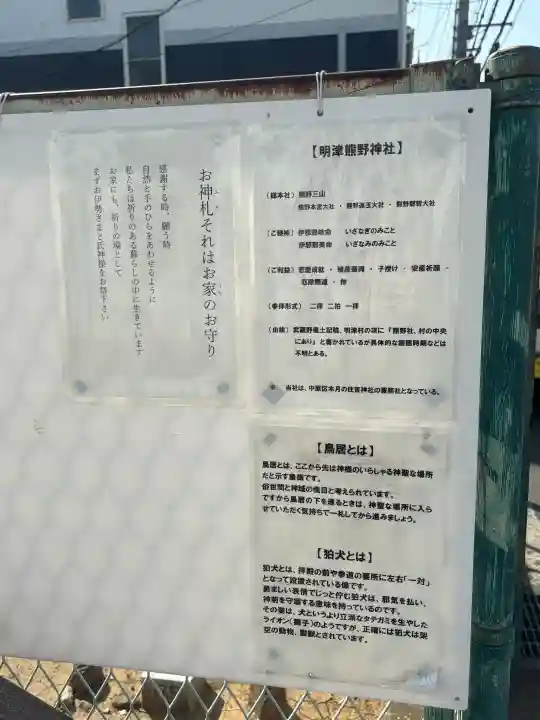 【明津熊野神社】
（総本社） 熊野三山
熊野本宮大社 ・ 熊野速玉大社 ・ 熊野那智大社
（ご祭神） 伊弉諾岐命 いざなぎのみこと
いざなみのみこと
（ご利益） 恋愛成就 ・ 殖産振興 ・ 子授け ・ 安産祈願 ・
（参拝形式） 二拝 二拍 一拝
（由緒） 武蔵野風土記稿、明津村の項に 「熊野社、村の中央
にあり」 と書かれているが具体的な創建時期などは
不明とある。
＊ 当社は、中原区木月の住吉神社の兼務社となっている。
お神札それはお家のお守り
感謝する時、願う時
自然と手のひらをあわせるように
私たちは祈りのある暮らしの中に生きています
お家にも、祈りの場として
まずお伊勢さまと氏神様をお祭り下さい
【鳥居とは】
鳥居とは、ここから先は神様のいらっしゃる神聖な場所
だと示す象徴です。
俗世間と神域の境目と考えられています。
ですから鳥居の下を通るときは、神聖な場所に入ら
せていただく気持ちで一礼してから進みましょう。
【狛犬とは】
狛犬とは、拝殿の前や参道の要所に左右「一対」
となって設置されている像です。
勇ましい表情でじっと佇む狛犬は、邪気を払い、
神前を守護する意味を持っているのです。
その姿は、犬というより立派なタテガミを生やした
ライオン（獅子）のようですが、正確には狛犬は架
空の動物、霊獣とされています。